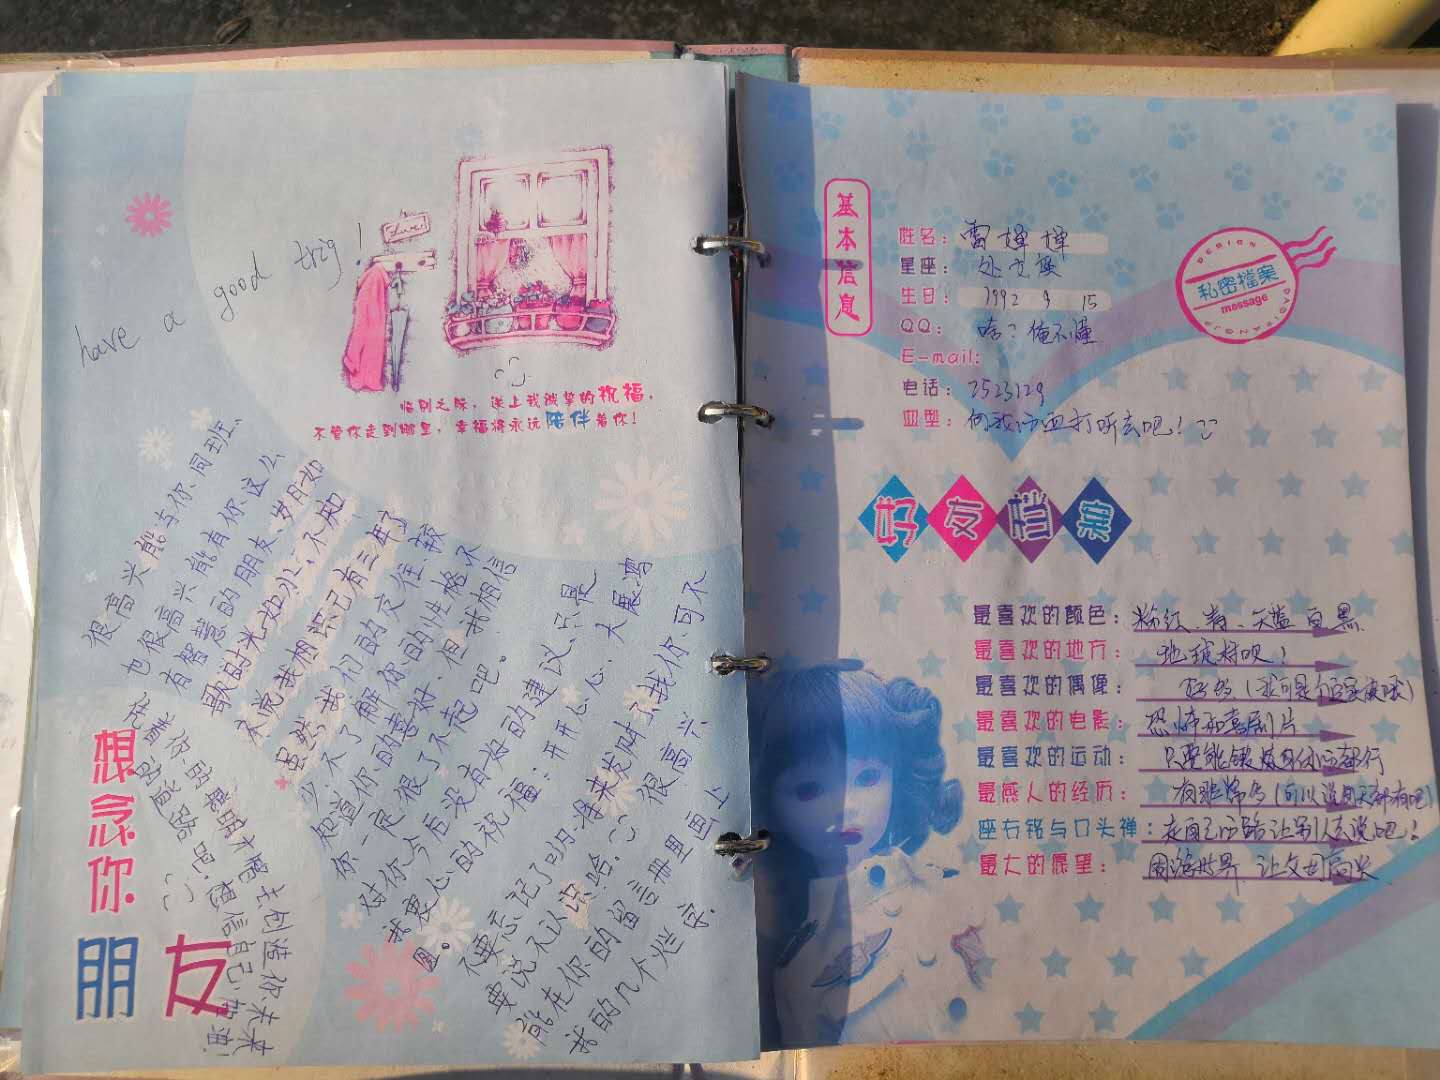 have a good trig!
Love
临别之际，送上我诚挚的祝福，
不管你走到哪里，幸福将永远陪伴着你！
很高兴能与你同班、
也很高兴能有你这么
有智慧的朋友、岁月如
歌的时光如水、不知
不觉我相识已有三年了
虽然我们的交往较
少、不了解你的性格不
知道你的喜好、但我相信
你一定很了不起吧。
对你今后没有好的建议只是
我衷心的祝福：开开心心、大展鸿
图。
不要忘记了哟、将来发财了我你可不
要说不认识哈。很高兴、
能在你的留言册里画上
我的几个烂字.
用
你的聪明才智去创造你未来
的路吧！想信自己加油！
想念你
朋友
基本信息
姓名：雷婵婵
星座：处女座
生日：1992 9 15
QQ：啥？俺不懂
E-mail:
电话：2523129
血型：问我的血打听去吧！
DESIGN
私密档案
message
好友档案
最喜欢的颜色：粉红、青、天蓝 白 黑
最喜欢的地方：地球村呗！
最喜欢的偶像：
最喜欢的电影：恐怖和喜剧片
最喜欢的运动：只要能锻炼身体的都行
最感人的经历：
座右铭与口头禅：走自己的路让别人去说吧！
最大的愿望：周游世界 让父母高兴